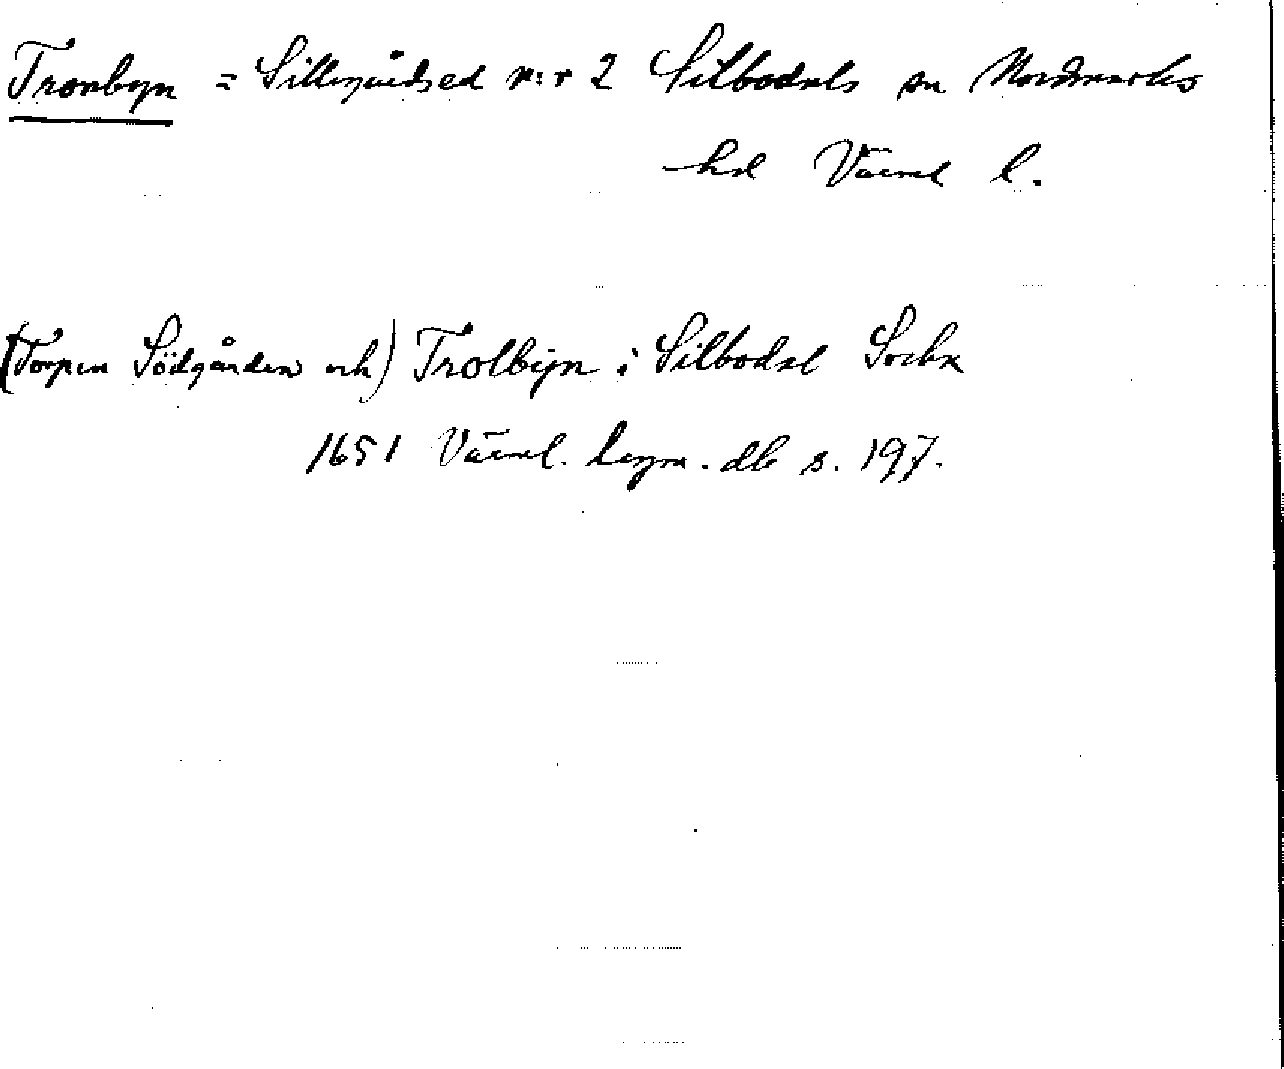 Tronbyn = Sillegårdsed n:r 2 Silbodals sn Nordmarks
hd Värml l.
(Torpen Södgården och) Trolbijn i Silbodal Sockn
1651 Värml. lagm. db s. 197.